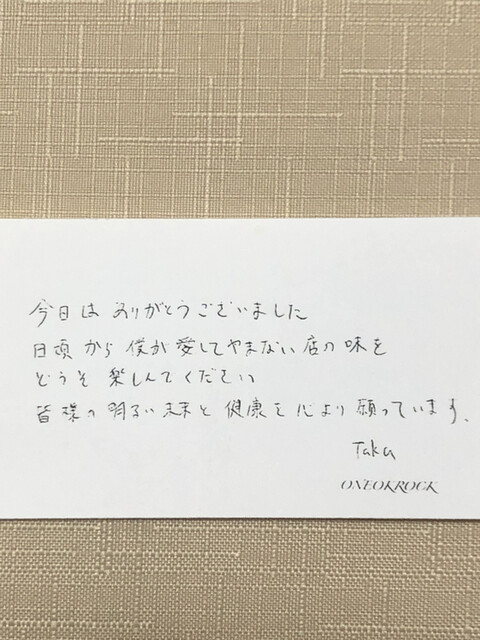 今日は ありがとうございました
日頃から 僕が愛してやまない店の味を
どうぞ 楽しんでください
皆様の明るい未来と健康を心より願っています。
Taka
ONEOKROCK